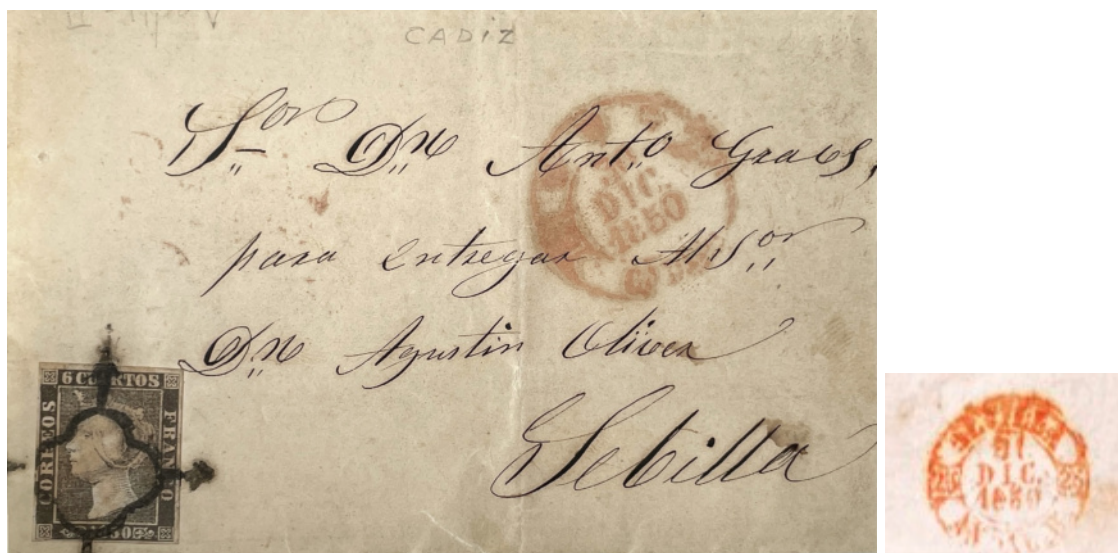 CADIZ
Sor Dn Anto Graces,
DIC.
1850
para entregar Al Sor
Dn Agustin Oliver
6 CUARTOS
CORREOS
FRANCO
1850
Sebilla
SEVILLA
31
DIC.
1850